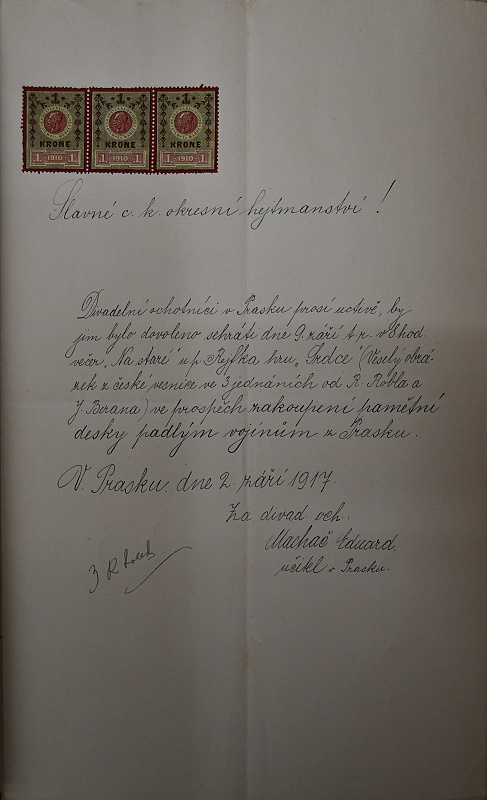 1 1 1
KRONE KRONE KRONE
1 1910 1 1 1910 1 1 1910 1
Slavné c. k. okresní hejtmanství!
Divadelní ochotníci v Prasku prosí uctivě, by
jim bylo dovoleno sehráti dne 9. září t. r. v 8 hod.
večer „Na staré" u p. Ryfka hru „Srdce" (Veselý obrá-
zek z české vesnice ve 3 jednáních od R. Robla a
J. Berana) ve prospěch zakoupení pamětní
desky padlým vojínům z Prasku.
V Prasku, dne 2. září 1917.
Za divad. och.
Machač Eduard,
učitel v Prasku.
3 K